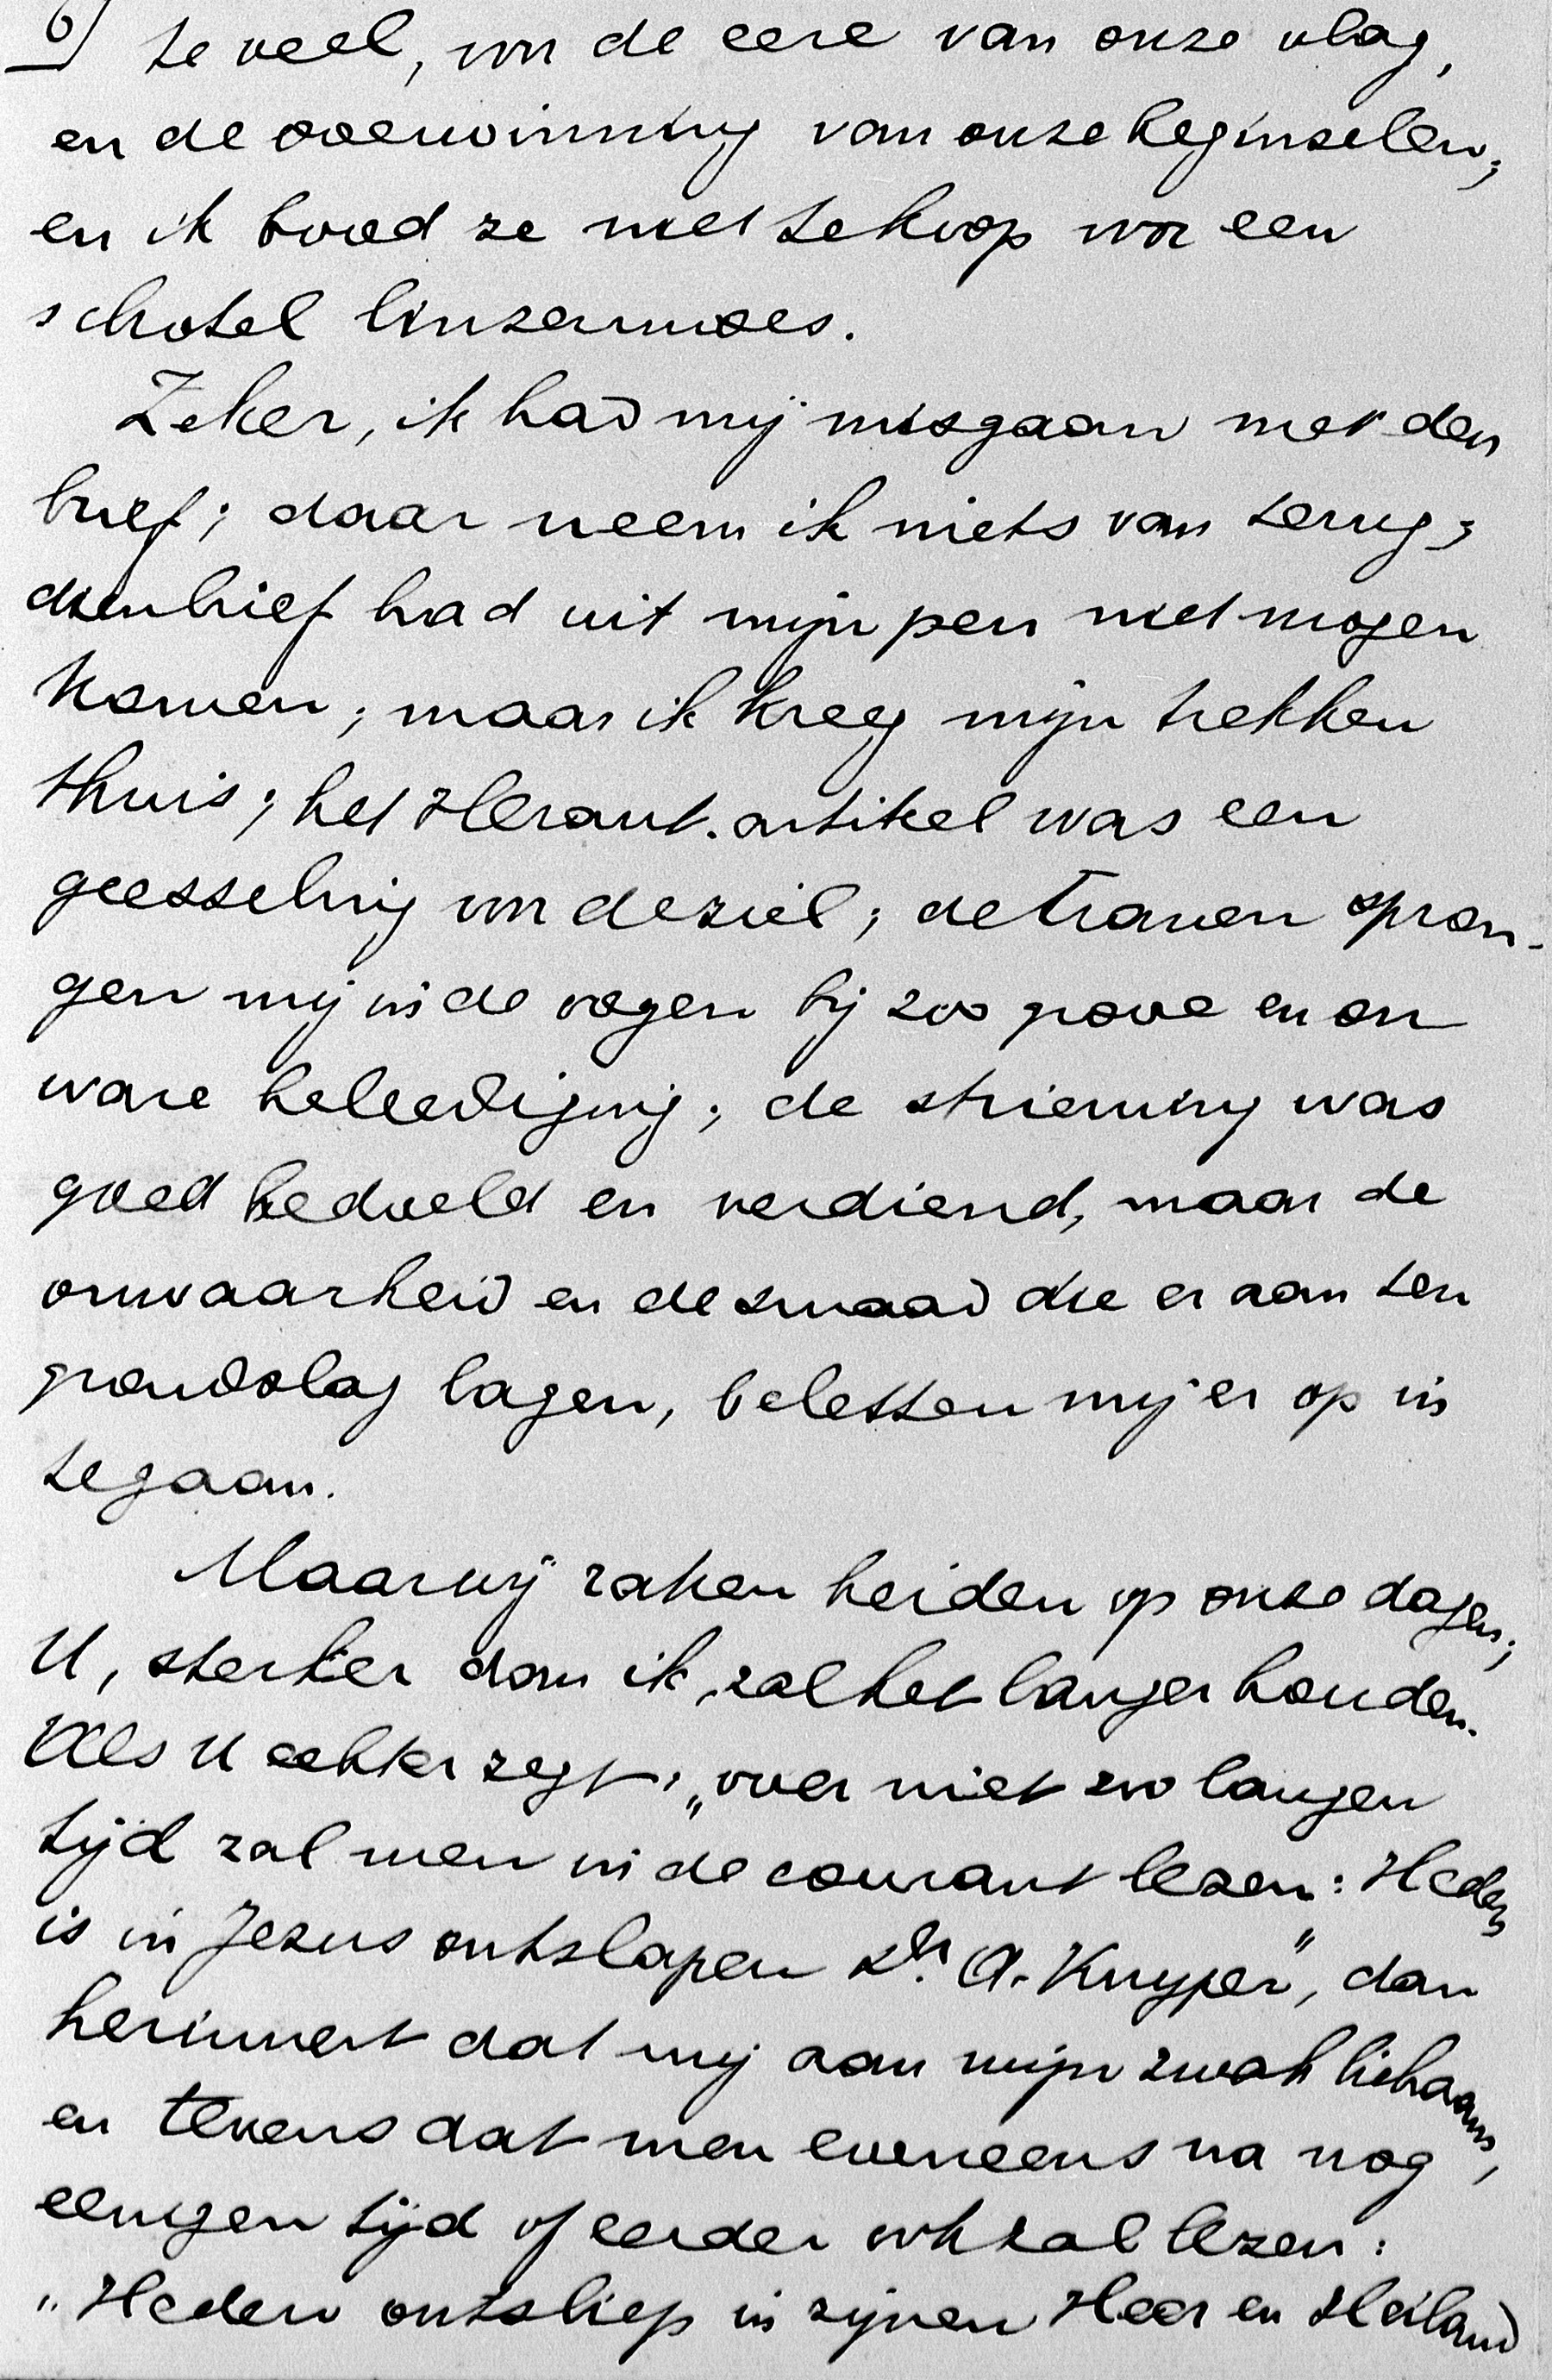 6/ te veel, von de eere van onze vlag,
en de overwinning van onze beginselen;
en ik bood ze niet te koop voor een
schotel linzenmoes.
Zeker, ik had mij misgaan met den
brief; daar neem ik niets van terug;
dien brief had uit mijn pen niet mogen
komen; maar ik kreeg mijn trekken
thuis; het Heraut. artikel was een
geesseling von de ziel; de tranen spron-
gen mij in de oogen bij zoo grove en on
ware beleediging; de strieming was
goed bedoeld en verdiend, maar de
onwaarheid en de smaad die er aan ten
grondslag lagen, beletten mij er op in
te gaan.
Maar wij raken beiden op onze dagen;
U, sterker dan ik, zal het langer houden.
Als U echter zegt: „over niet zoo langen
tijd zal men in de courant lezen: Heden
is in Jezus ontslapen Dr. A. Kuyper", dan
herinnert dat mij aan mijn zwak lichaam,
en tevens dat men eveneens na nog
eenigen tijd of eerder ook zal lezen:
„Heden ontsliep in zijnen Heer en Heiland